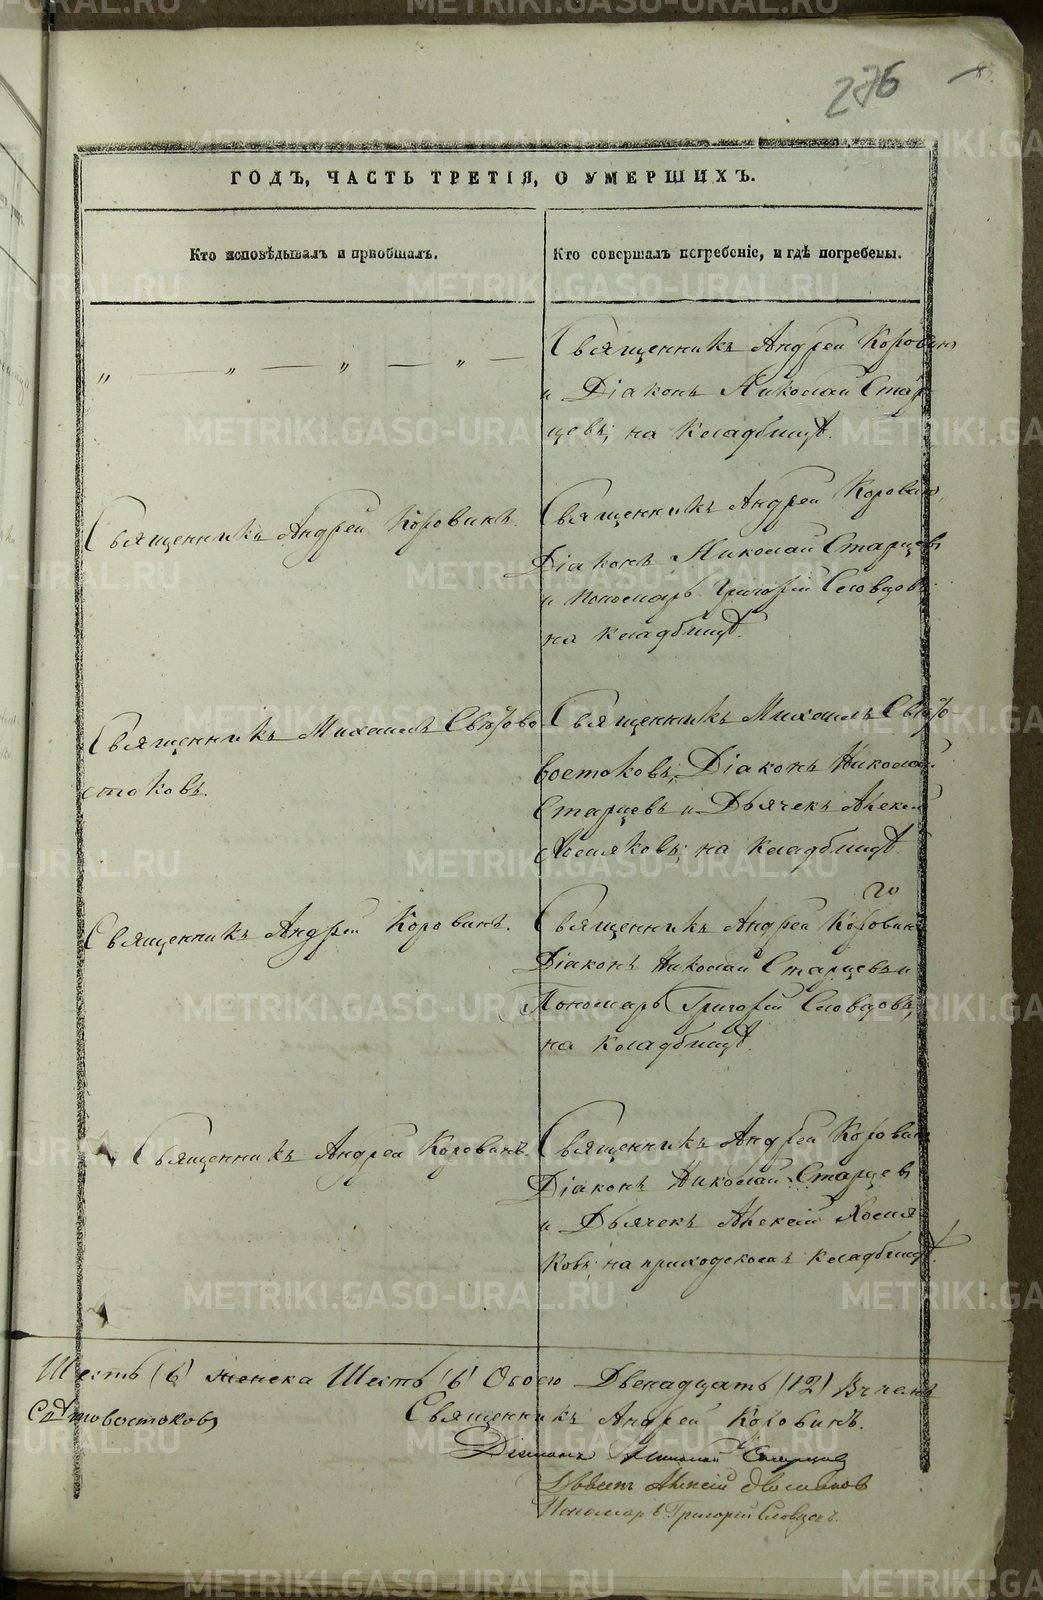 276
ГОДЪ, ЧАСТЬ ТРЕТІЯ, О УМЕРШИХЪ.
Кто исповѣдывалъ и пріобщалъ.
Кто совершалъ погребеніе, и гдѣ погребены.
„ — „ — „ — „ —
Священникъ Андрей Коровинъ
и Діаконъ Николай Стар
цевъ; на кладбищѣ.
Священникъ Андрей Коровинъ.
Священникъ Андрей Коровинъ,
Діаконъ Николай Старцевъ
и пономарь Григорій Словцовъ
на кладбищѣ.
Священникъ Михаилъ Свѣтово
стоковъ.
Священникъ Михаилъ Свѣто-
востоковъ, Діаконъ Николай
Старцевъ и Дьячекъ Алексій
Хосяковъ; на кладбищѣ.
Священникъ Андрей Коровинъ.
Священникъ Андрей Коровинъ
Діаконъ Николай Старцевъ и
Пономарь Григорій Словцовъ,
на кладбищѣ.
Священникъ Андрей Коровинъ.
Священникъ Андрей Коровинъ
Діаконъ Николай Старцевъ
и Дьячекъ Алексій
на приходскомъ кладбищѣ.
Шесть (6) женска Шесть (6) Обоего Двенадцать (12)
Свѣтовостоковъ
Священникъ Андрей Коровинъ.
Діаконъ Николай Старцевъ
Алексій
Пономарь Григорій Словцовъ.
METRIKI.GASO-URAL.RU